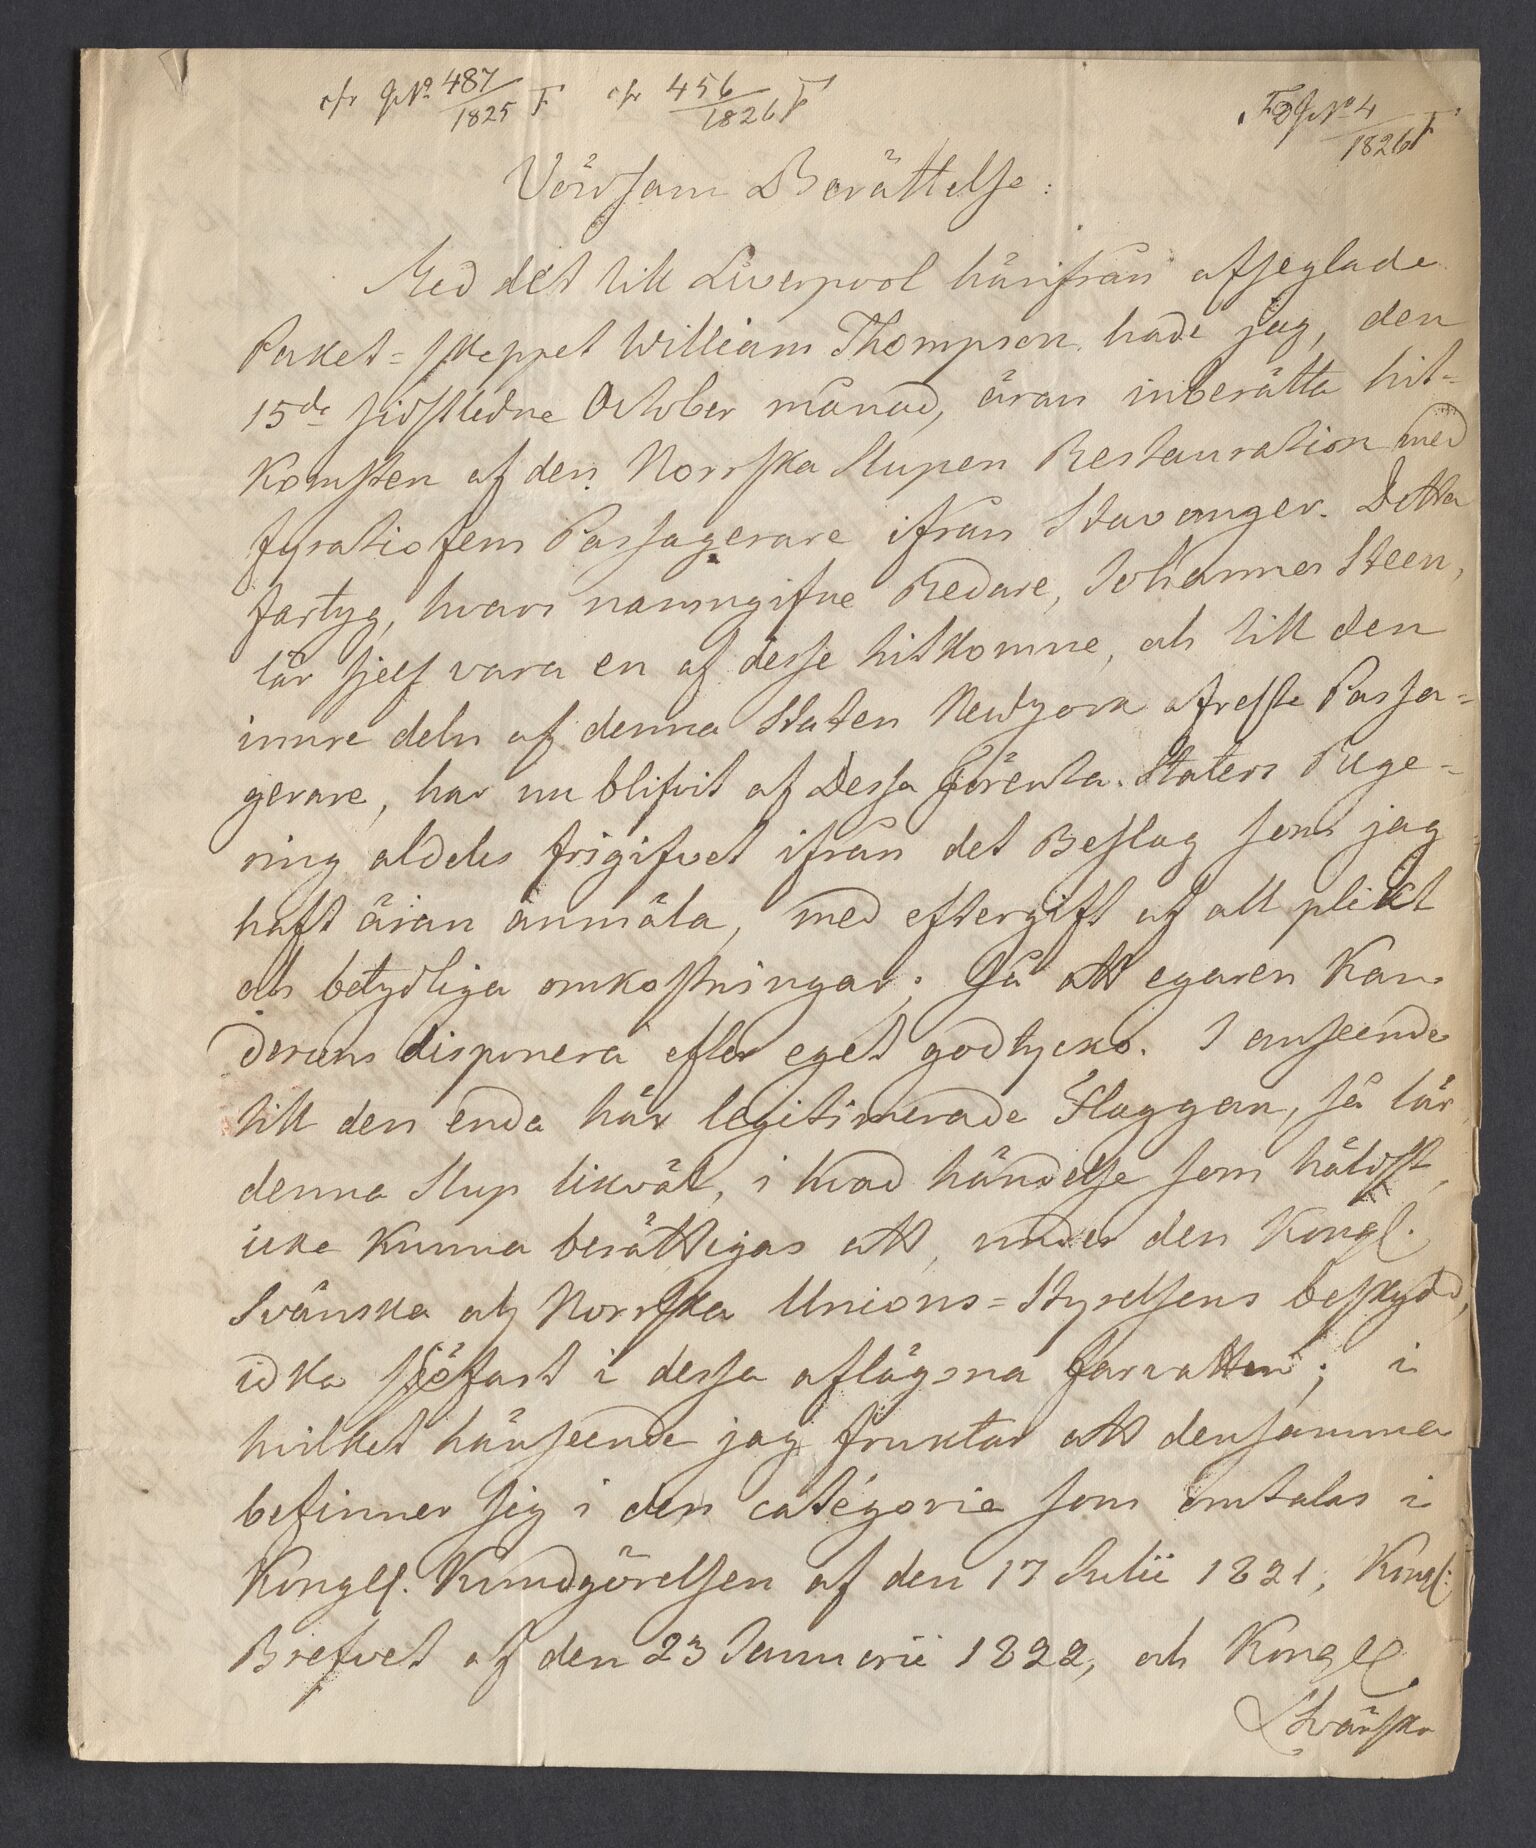 cfr JNo 487/1825 F cfr 456/1826 F
JNo 4/1826 F
Vörsam Berättelse:
Med det till Liverpool härifrån afseglade
Paket=skeppet William Thompson hade jag, den
15de sidstledne October månad, äran inberätta hit=
komsten af den Norrska Slupen Restauration med
fyratiofem Passagerare ifrån Stavanger. Detta
fartyg, hvars namngifne Redare, Johannes Steen,
lär sjelf vara en af desse hitkomne, och till den
innre deln af denna Staten Newyork afreste Passa=
gerare, har nu blifvit af Dessa Förenta Staters Rege=
ring aldeles frigifvet ifrån det Beslag som jag
haft äran anmäla, med eftergift af all plikt
och betydliga omkostningar; Så att egaren kan
derom disponera efter eget godtycke. I anseende
till den enda här legitimerade Flaggan, så lär
denna Slup likväl, i hvad händelse som häldst,
icke kunna berättigas att, under den Kongl.
Svänska och Norrska Unions=Styrelsens beskydd,
idka sjöfart i dessa aflägsna farvatten; i
hvilket hänseende jag fruktar att densamma
befinner sig i den catégorie som omtalas i
Kongl. Kundgörelsen af den 17 Julii 1821, Kongl.
Brefvet af den 23 Januarii 1822, och Kongl
Svänska